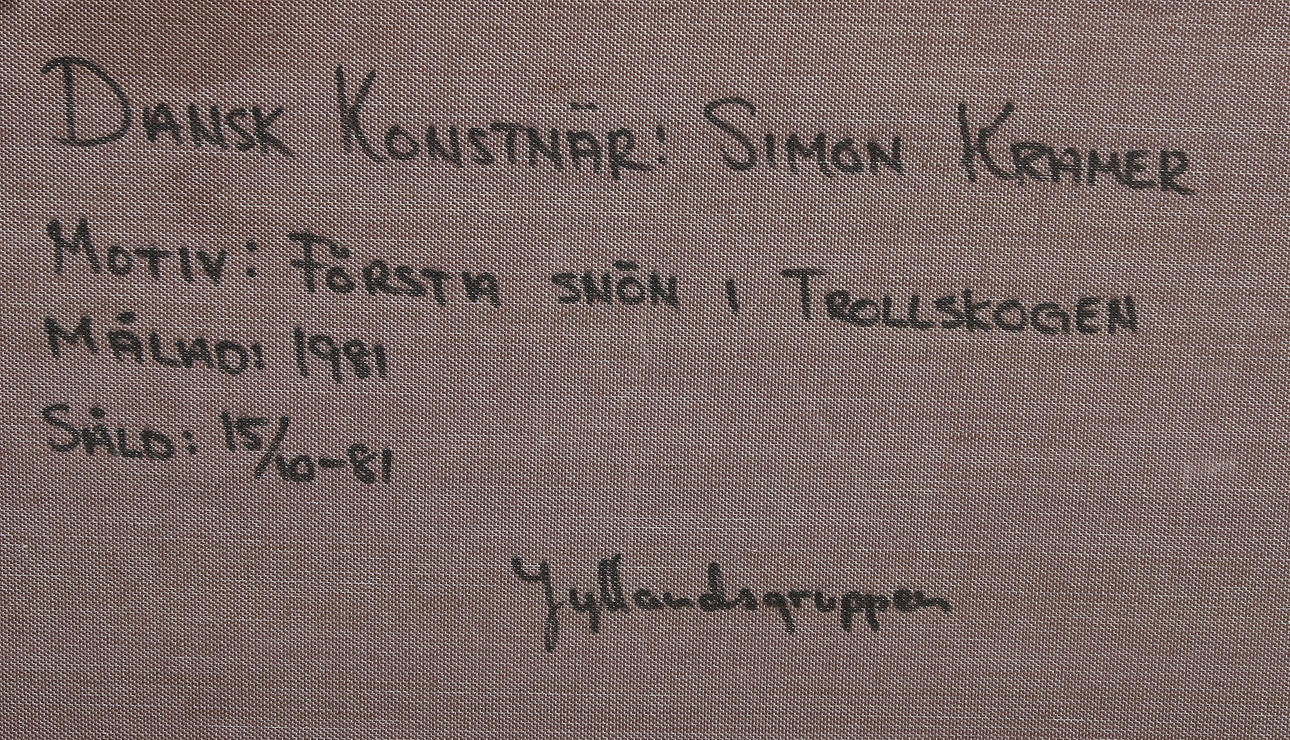 DANSK KONSTNÄR: SIMON KRAMER
MOTIV: FÖRSTA SNÖN I TROLLSKOGEN
MÅLAD: 1981
SÅLD: 15/10-81
Jyllandsgruppen